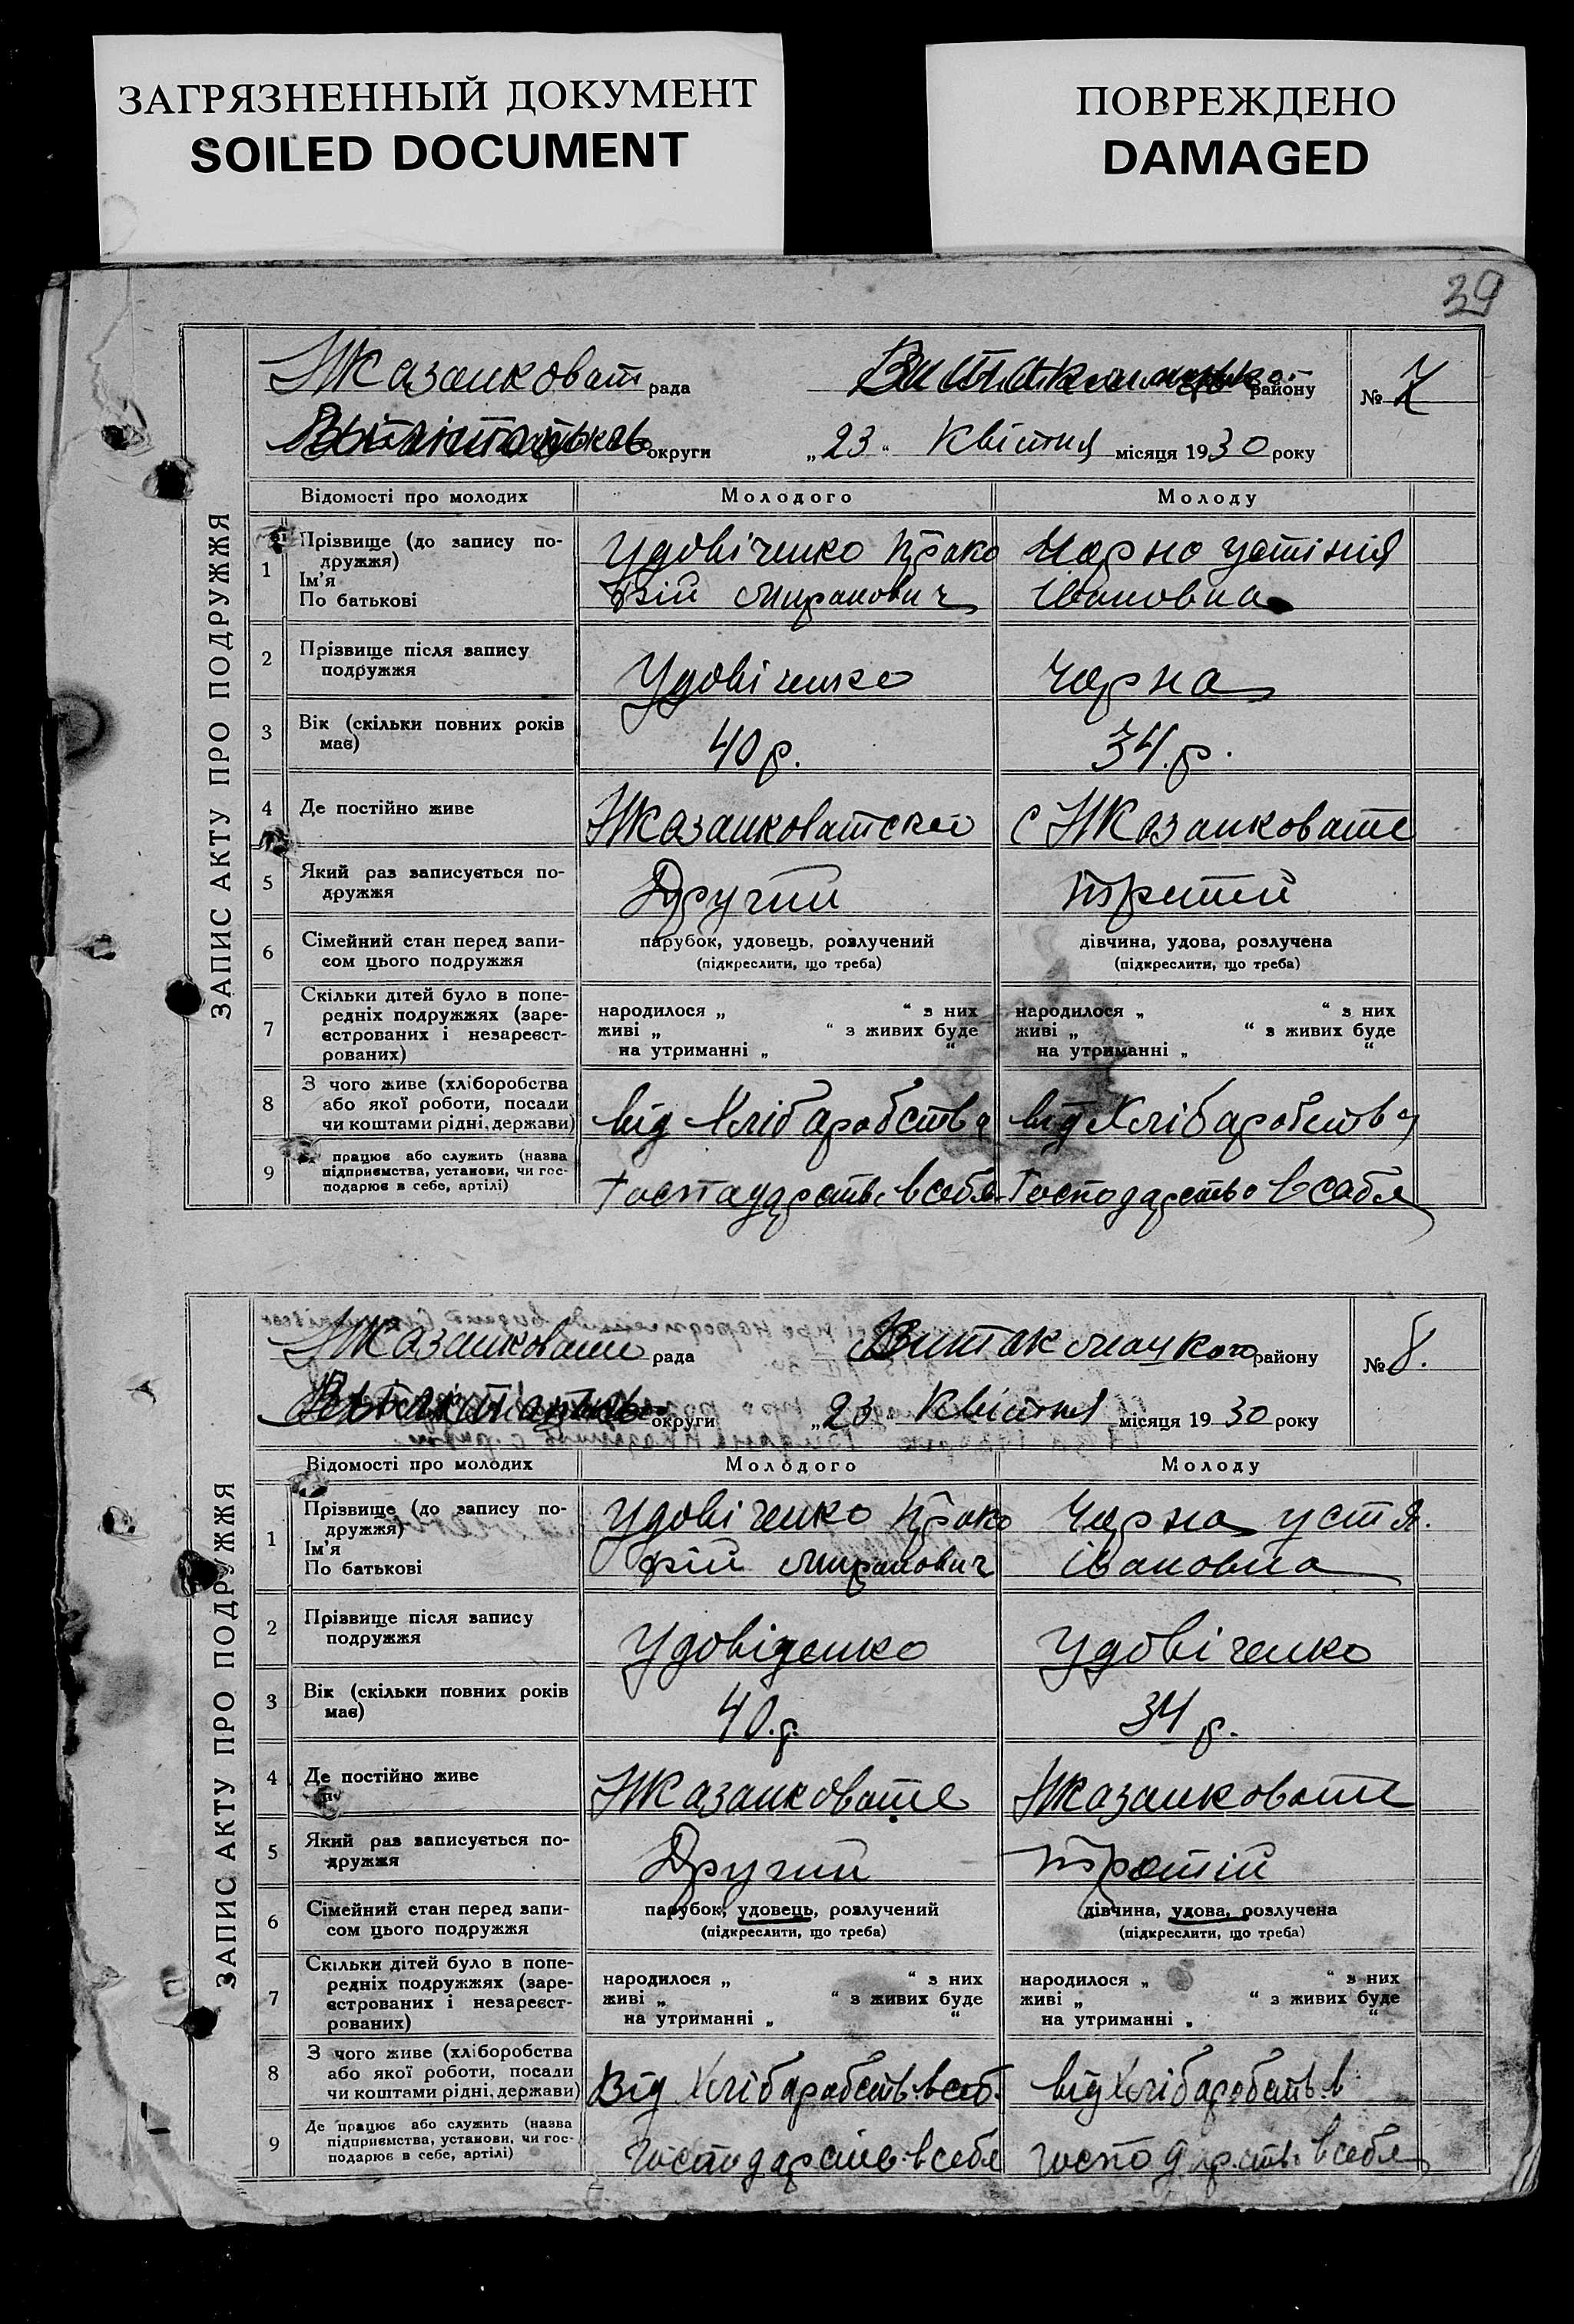 ЗАГРЯЗНЕННЫЙ ДОКУМЕНТ
SOILED DOCUMENT
ПОВРЕЖДЕНО
DAMAGED
39
ЗАПИС АКТУ ПРО ПОДРУЖЖЯ
рада району № 7
округи „23“ Квітня місяця 1930 року
Відомості про молодих Молодого Молоду
1 Прізвище (до запису по-
дружжя)
Ім'я
По батькові
Удовіченко Проко
фій Миранович
Чорно Устінія
Івановна
2 Прізвище після запису
подружжя
Удовіченко Чорна
3 Вік (скільки повних років
має)
40 р. 34.р.
4 Де постійно живе
5 Який раз записується по-
дружжя
Другий третий
6 Сімейний стан перед запи-
сом цього подружжя
парубок, удовець, розлучений
(підкреслити, що треба)
дівчина, удова, розлучена
(підкреслити, що треба)
7 Скільки дітей було в попе-
редніх подружжях (заре-
єстрованих і незареєст-
рованих)
народилося „ “ з них
живі „ “ з живих буде
на утриманні „ “
народилося „ “ з них
живі „ “ з живих буде
на утриманні „ “
8 З чого живе (хліборобства
або якої роботи, посади
чи коштами рідні, держави)
від Хлібаробства від Хлібаробства
9 працює або служить (назва
підприємства, установи, чи гос-
подарює в себе, артілі)
Господарство в сабя
ЗАПИС АКТУ ПРО ПОДРУЖЖЯ
рада району № 8.
округи „23“ Квітня місяця 1930 року
Відомості про молодих Молодого Молоду
1 Прізвище (до запису по-
дружжя)
Ім'я
По батькові
Удовіченко Проко
фій Миранович
Чорна Устя.
Івановна
2 Прізвище після запису
подружжя
Удовіченко Удовіченко
3 Вік (скільки повних років
має)
40.р. 34 р.
4 Де постійно живе
5 Який раз записується по-
дружжя
Другий третій
6 Сімейний стан перед запи-
сом цього подружжя
парубок, удовець, розлучений
(підкреслити, що треба)
дівчина, удова, розлучена
(підкреслити, що треба)
7 Скільки дітей було в попе-
редніх подружжях (заре-
єстрованих і незареєст-
рованих)
народилося „ “ з них
живі „ “ з живих буде
на утриманні „ “
народилося „ “ з них
живі „ “ з живих буде
на утриманні „ “
8 З чого живе (хліборобства
або якої роботи, посади
чи коштами рідні, держави)
Від Хлібаробств. в соб. від Хлібаробств. в
9 Де працює або служить (назва
підприємства, установи, чи гос-
подарює в себе, артілі)
господарств. в себя господарств. в себя